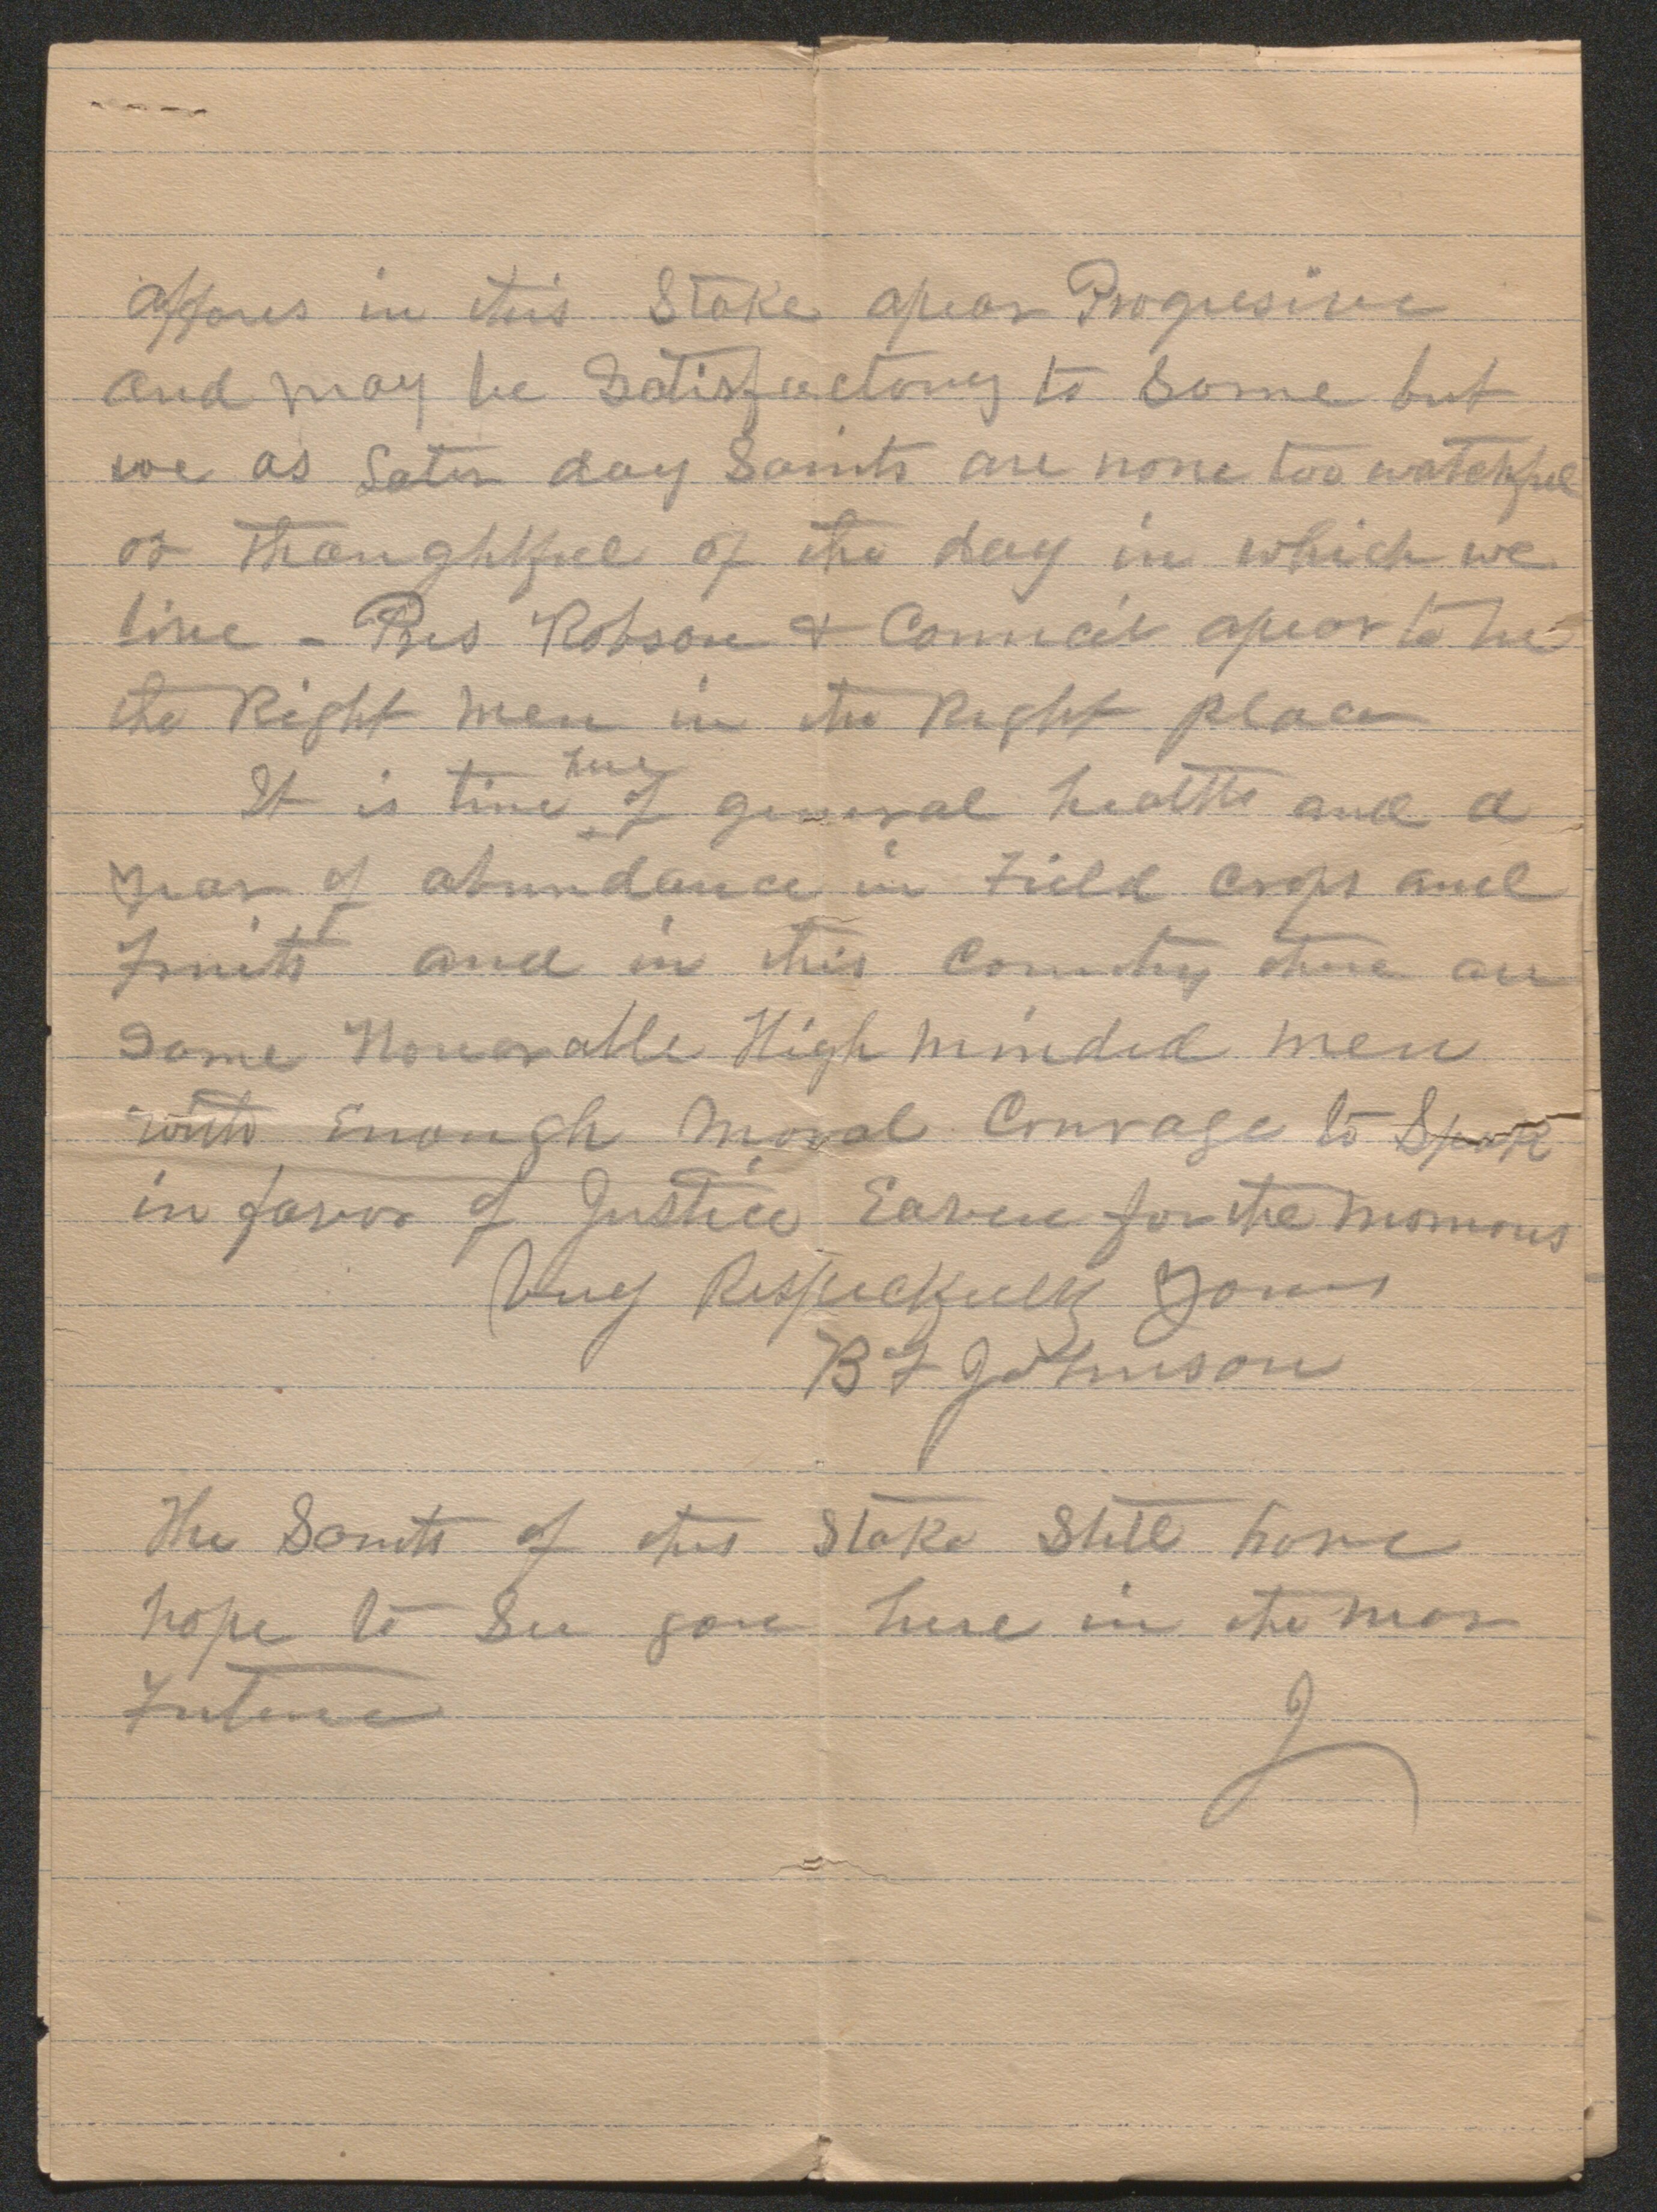 Affares in this Stake apear Progresive
and may be Satisfactory to Some but
we as Later day Saints are none too watchful
or thoughtful of the day in which we
live - Pres Robson & Council apear to be
the Right men in the Right place
It is time here of general health and a
year of abundance in Field crops and
Fruits and in this Country there are
Some Honorable High minded men
with Enough moral Courage to Speak
in favor of Justice Eaven for the mormons
Very Respectfully Yours
B F Johnson
The Saints of this Stake Still have
hope to See you here in the near
Future
J